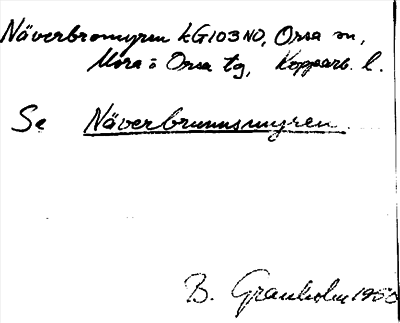 Näverbromyren kG103NO, Orsa sn,
Mora o Orsa tg, Kopparb. l.
Se Näverbrunnsmyren.
B. Granholm 1950